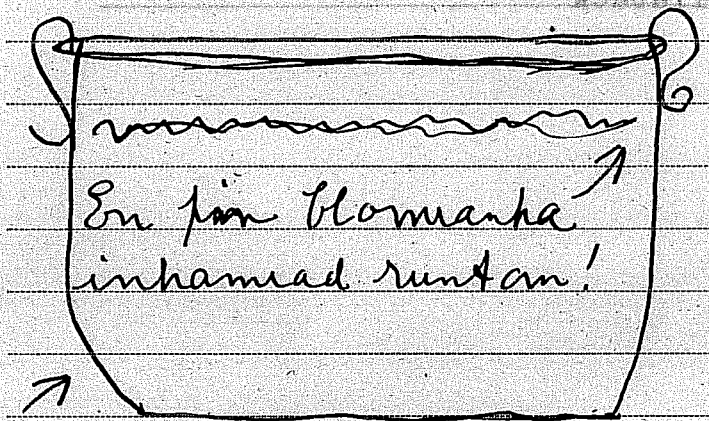 En fin blomranka
inhamrad runtom!